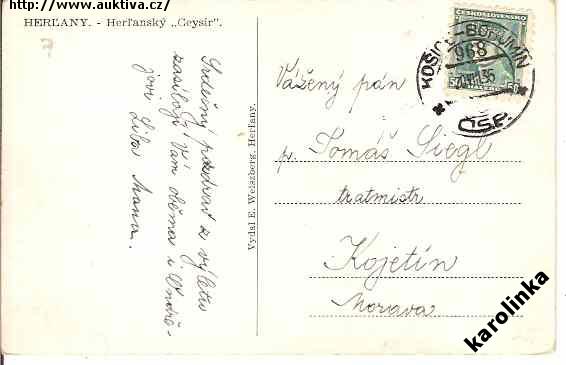 http://www.auktiva.cz/
HERĽANY. - Herľanský „Geysír".
Srdečný pozdrav z výletu
zasílají Vám oběma i Ondře-
jovi Liba
Vydal E. Weiszberg, Herľany.
ČESKOSLOVENSKO
50
KOŠICE-BOHUMÍN
968
ČSP.
Vážený pán
p. Tomáš Siegl
tratmistr
Kojetín
Morava
karolinka